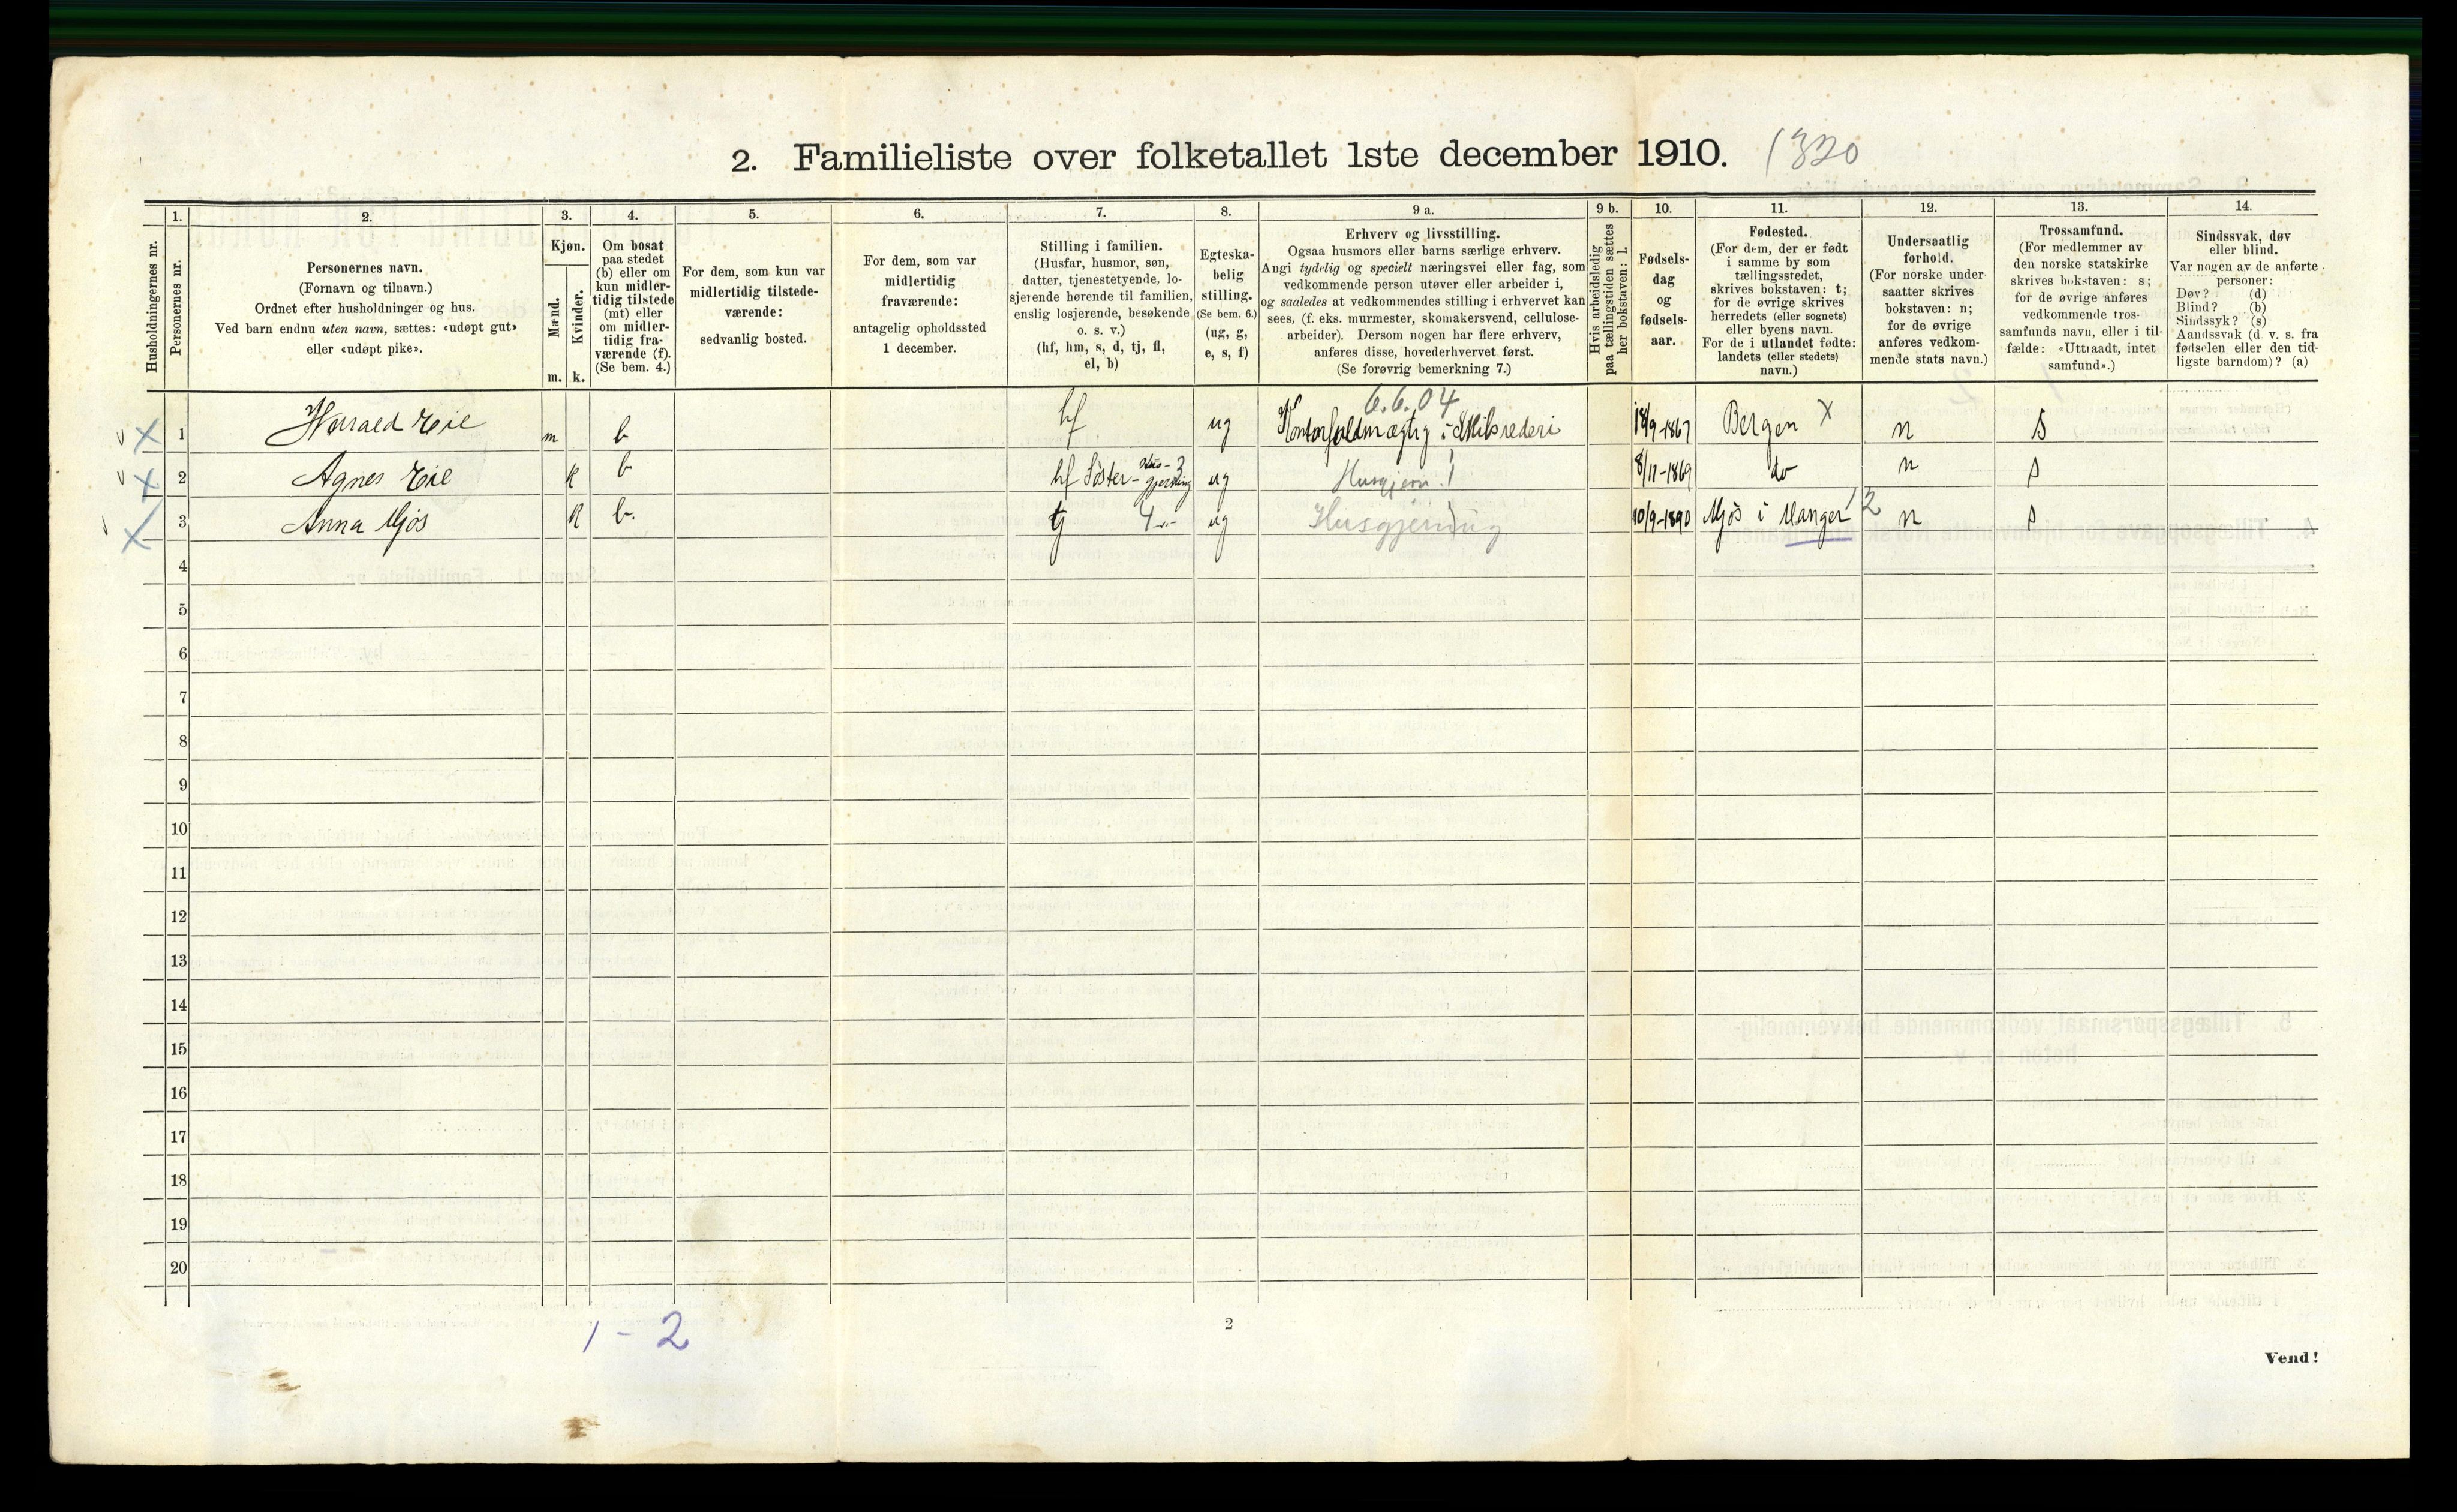 2. Familieliste over folketallet 1ste december 1910. 1320
Husholdningernes nr.
1.
Personernes nr.
2.
Personernes navn.
(Fornavn og tilnavn.)
Ordnet efter husholdninger og hus.
Ved barn endnu uten navn, sættes: «udøpt gut»
eller «udøpt pike».
3.
Kjøn.
Mænd.
Kvinder.
m. k.
4.
Om bosat
paa stedet
(b) eller om
kun midler-
tidig tilstede
(mt) eller
om midler-
tidig fra-
værende (f).
(Se bem. 4.)
5.
For dem, som kun var
midlertidig tilstede-
værende:
sedvanlig bosted.
6.
For dem, som var
midlertidig
fraværende:
antagelig opholdssted
1 december.
7.
Stilling i familien.
(Husfar, husmor, søn,
datter, tjenestetyende, lo-
sjerende hørende til familien,
enslig losjerende, besøkende
o. s. v.)
(hf, hm, s, d, tj, fl,
el, b)
8.
Egteska-
belig
stilling.
(Se bem. 6.)
(ug, g,
e, s, f)
9 a.
Erhverv og livsstilling.
Ogsaa husmors eller barns særlige erhverv.
Angi tydelig og specielt næringsvei eller fag, som
vedkommende person utøver eller arbeider i,
og saaledes at vedkommendes stilling i erhvervet kan
sees, (f. eks. murmester, skomakersvend, cellulose-
arbeider). Dersom nogen har flere erhverv,
anføres disse, hovederhvervet først.
(Se forøvrig bemerkning 7.)
9 b.
Hvis arbeidsledig
paa tællingstiden sættes
her bokstaven: l.
10.
Fødsels-
dag
og
fødsels-
aar.
11.
Fødested.
(For dem, der er født
i samme by som
tællingsstedet,
skrives bokstaven: t;
for de øvrige skrives
herredets (eller sognets)
eller byens navn.
For de i utlandet fødte:
landets (eller stedets)
navn.)
12.
Undersaatlig
forhold.
(For norske under-
saatter skrives
bokstaven: n;
for de øvrige
anføres vedkom-
mende stats navn.)
13.
Trossamfund.
(For medlemmer av
den norske statskirke
skrives bokstaven: s;
for de øvrige anføres
vedkommende tros-
samfunds navn, eller i til-
fælde: «Uttraadt, intet
samfund».)
14.
Sindssvak, døv
eller blind.
Var nogen av de anførte
personer:
Døv? (d)
Blind? (b)
Sindssyk? (s)
Aandssvak (d. v. s. fra
fødselen eller den tid-
ligste barndom)? (a)
6.6.04
1 Harald Eie m b hf ug Kontorfuldmægtig i Skibsrederi 18/9-1867 Bergen X n s
2 Agnes Eie k b hf Söster- Hus- gjerning 3 ug Husgjern. 8/11-1869 do n s
3 Anna Mjös k b. tj 4 ug Husgjerning 10/9-1890 Mjös i Manger 12 n s
4
5
6
7
8
9
10
11
12
13
14
15
16
17
18
19
20
1 - 2
2
Vend!